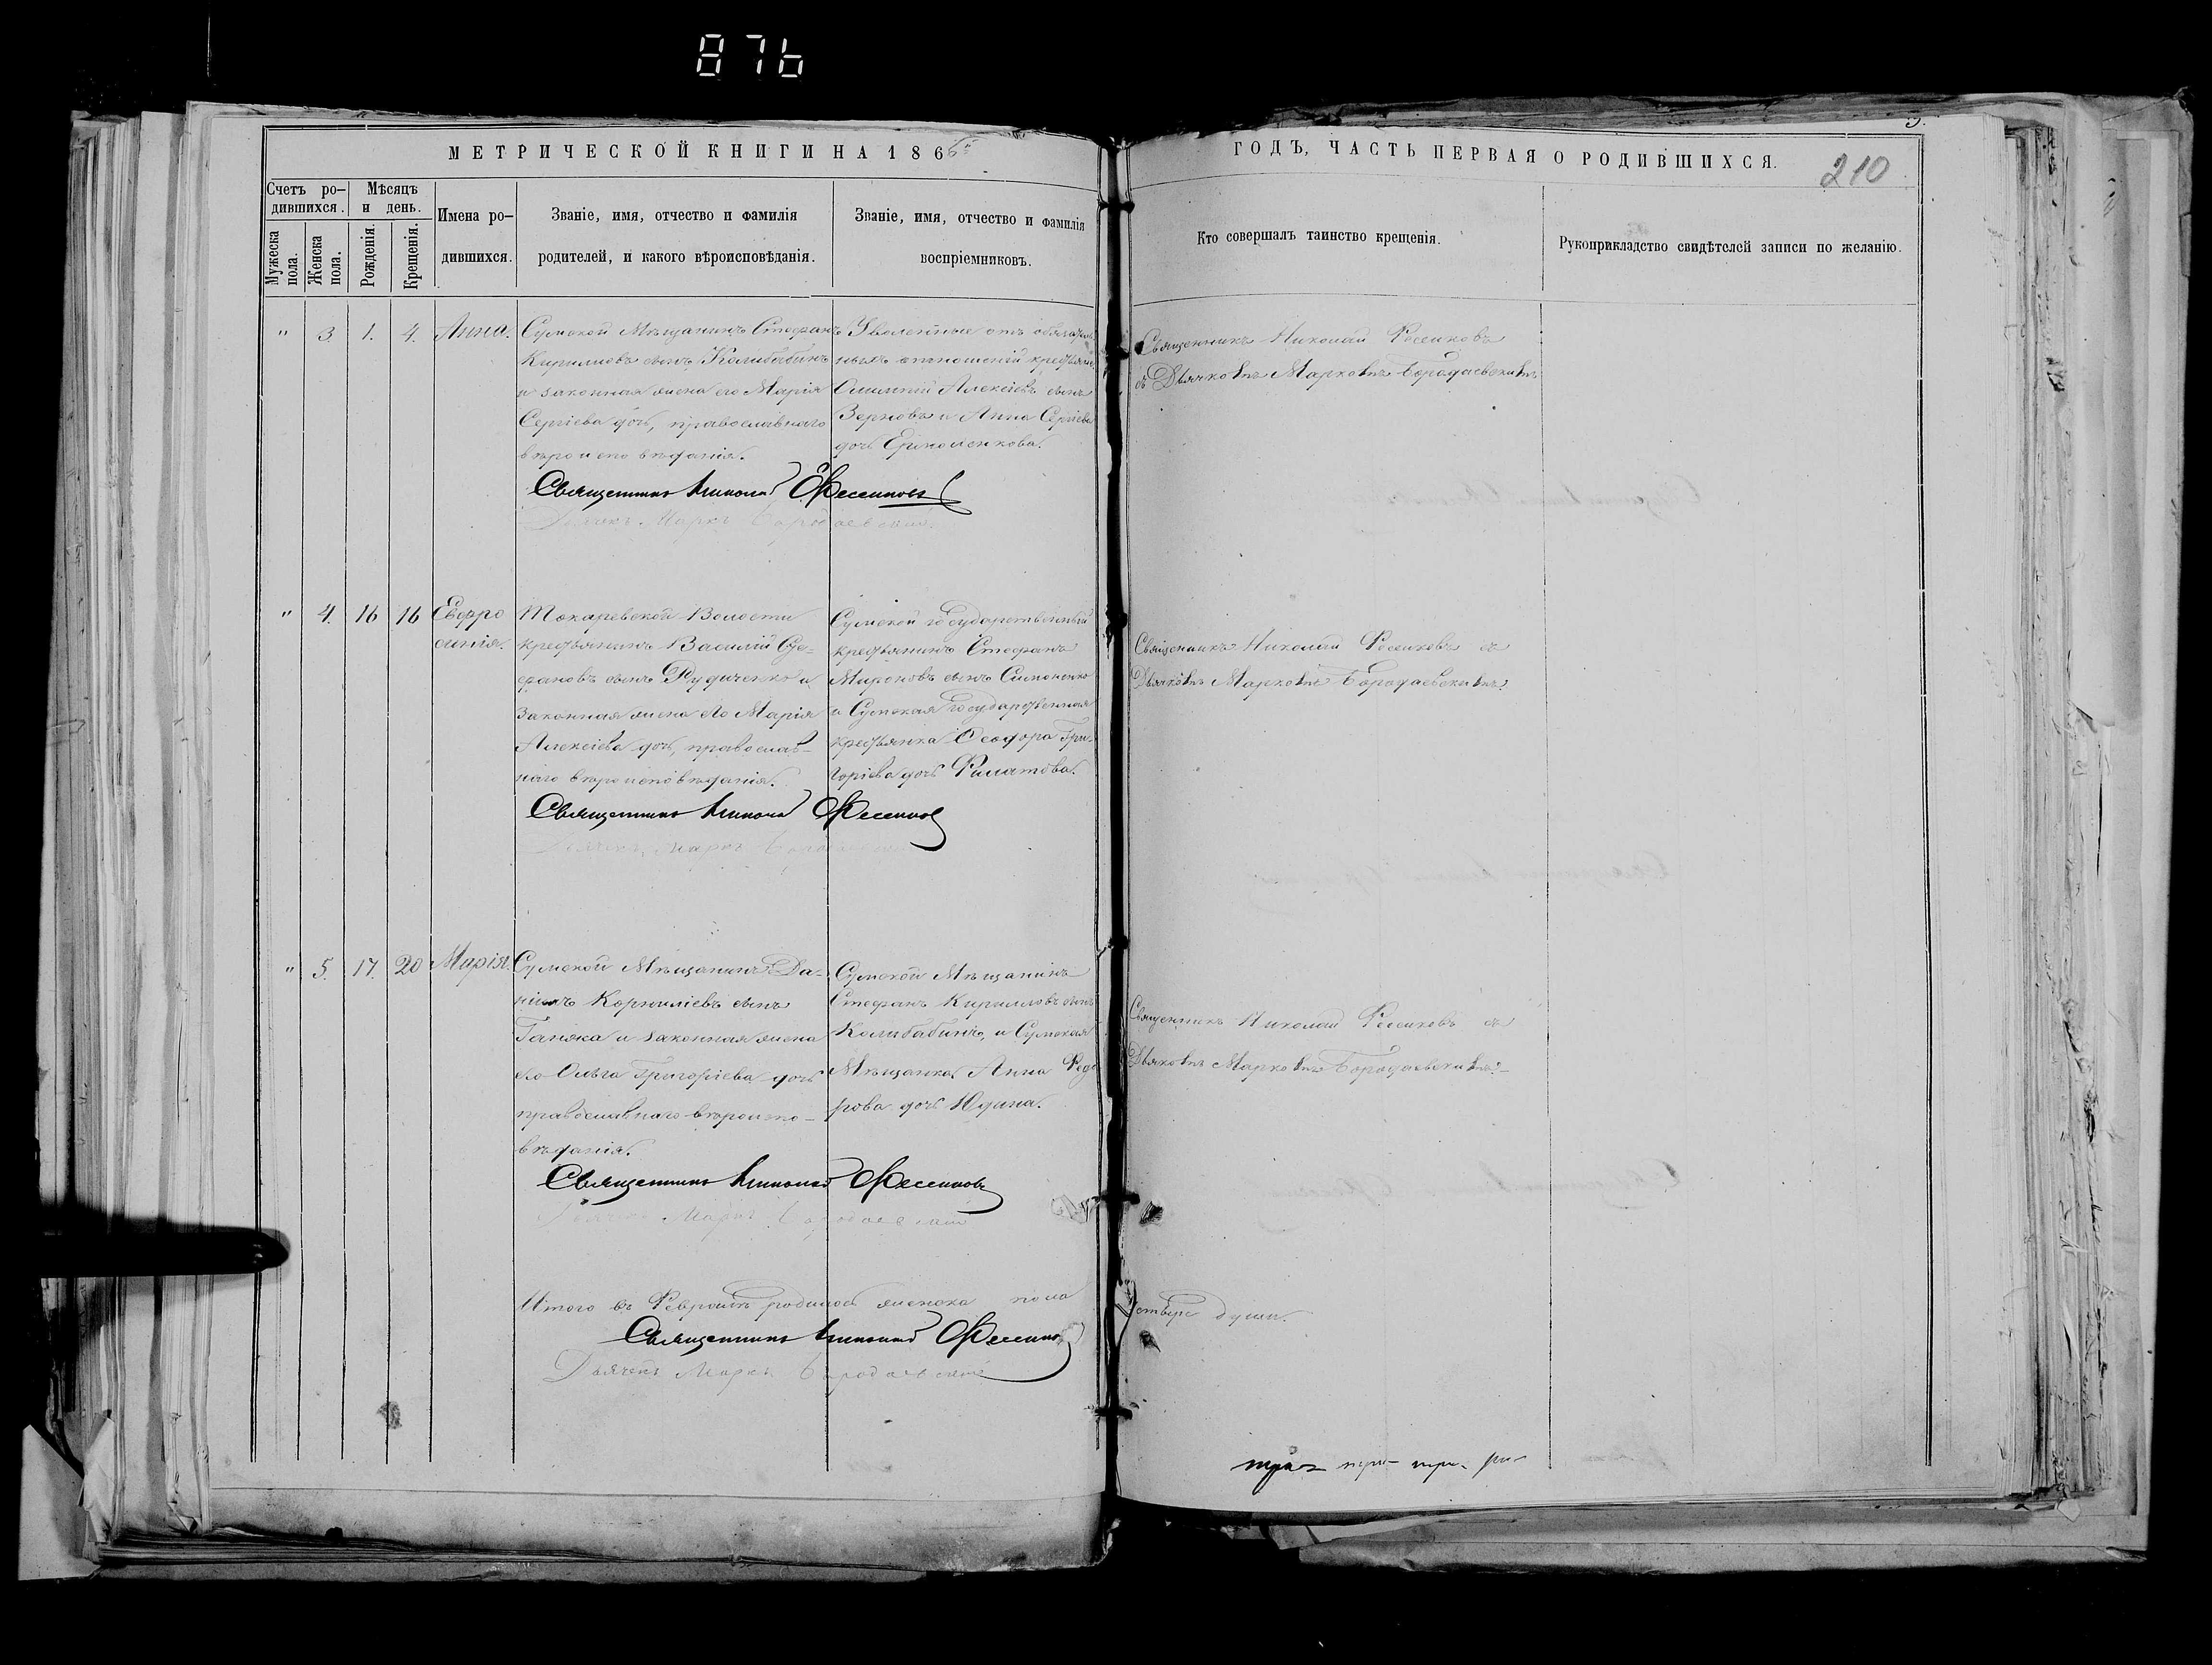 876
МЕТРИЧЕСКОЙ КНИГИ НА 1866й
ГОДЪ, ЧАСТЬ ПЕРВАЯ О РОДИВШИХСЯ.
210
Счетъ ро-
дившихся.
Мѣсяцъ
и день.
Мужеска
пола.
Женска
пола.
Рожденія.
Крещенія.
Имена ро-
дившихся.
Званіе, имя, отчество и фамилія
родителей, и какого вѣроисповѣданія.
Званіе, имя, отчество и фамилія
воспріемниковъ.
Кто совершалъ таинство крещенія.
Рукоприкладство свидѣтелей записи по желанію.
" 3. 1. 4. Анна.
Сумской Мѣщанинъ Стефанъ
Кириловъ сынъ Колибабинъ
и законная жена его Марія
Сергіева дочь, православнаго
вѣроисповѣданія.
Уволенные отъ обязатель
ныхъ отношеній крестьяне
Алексіевъ сынъ
Зерновъ и Анна Сергіева
дочь Ермоленкова.
Священникъ Николай Фесенковъ
Дьячекъ Маркъ Бородаевскій.
Священникъ Николай Фесенковъ
съ Дьячкомъ Маркомъ Бородаевскимъ
" 4. 16 16 Евфро
синія.
Токаревской Волости
крестьянинъ Василій Сте-
фановъ сынъ Рудиченко и
Законная жена его Марія
Алексіева дочь, православ-
наго вѣроисповѣданія.
Сумской государственный
крестьянинъ Стефанъ
Мироновъ сынъ Симоненко
и Сумская государственная
крестьянка Феодора Гри-
горіева дочь Филатова.
Священникъ Николай Фесенков
Дьячекъ Маркъ Бородаевскій
Священникъ Николай Фесенковъ съ
Дьячкомъ Маркомъ Бородаевскимъ.
" 5. 17. 20 Марія.
Сумской Мѣщанинъ Да-
ніилъ Корниліевъ сынъ
и законная жена
его Ольга Григоріева дочь
православнаго вѣроиспо-
вѣданія.
Сумской Мѣщанинъ
Стефанъ Кирилловъ сынъ
Колибабинъ, и Сумская
Мѣщанка Анна Федо
рова дочь Юдина.
Священникъ Николай Фесенковъ
Дьячекъ Маркъ Бородаевскій
Священникъ Николай Фесенковъ съ
Дьячкомъ Маркомъ Бородаевскимъ.
Итого въ Февралѣ родилось женска пола
души.
Священникъ Николай Фесенков
Дьячекъ Маркъ Бородаевскій